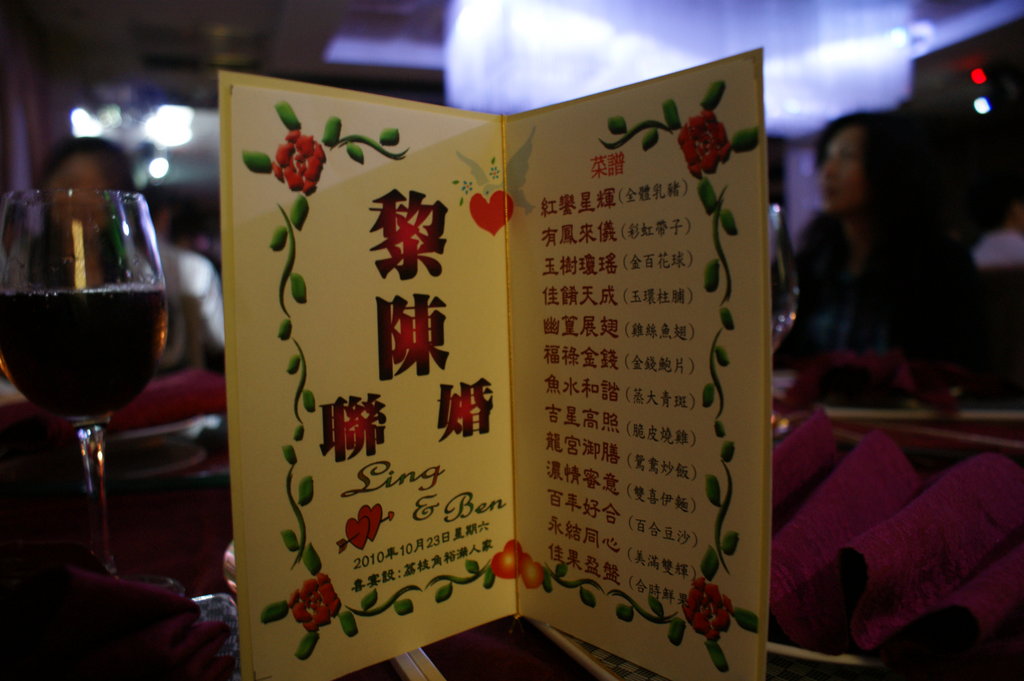 黎
陳
聯 婚
Ling
& Ben
2010年10月23日星期六
喜宴設:荔枝角裕瀛人家
菜譜
紅鑾星輝(全體乳豬)
有鳳來儀(彩虹帶子)
玉樹瓊瑤(金百花球)
佳餚天成(玉環柱脯)
幽篁展翅(雞絲魚翅)
福祿金錢(金錢鮑片)
魚水和諧(蒸大青斑)
吉星高照(脆皮燒雞)
龍宮御膳(鴛鴦炒飯)
濃情蜜意(雙喜伊麵)
百年好合(百合豆沙)
永結同心(美滿雙輝)
佳果盈盤(合時鮮果